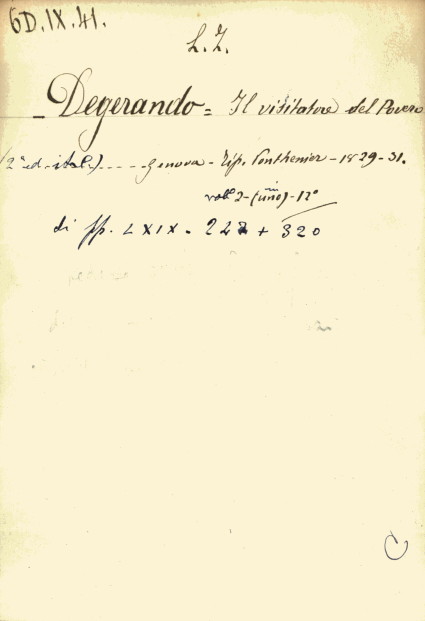 6D.IX.41.
L. Z.
Degerando = Il visitatore del Povero
(2ª ed. ital.) ..... Genova - Tip. Ponthenier - 1829-31.
voll. 2 - (in uno) - 12º
di pp. LXIX - 227 + 320
C